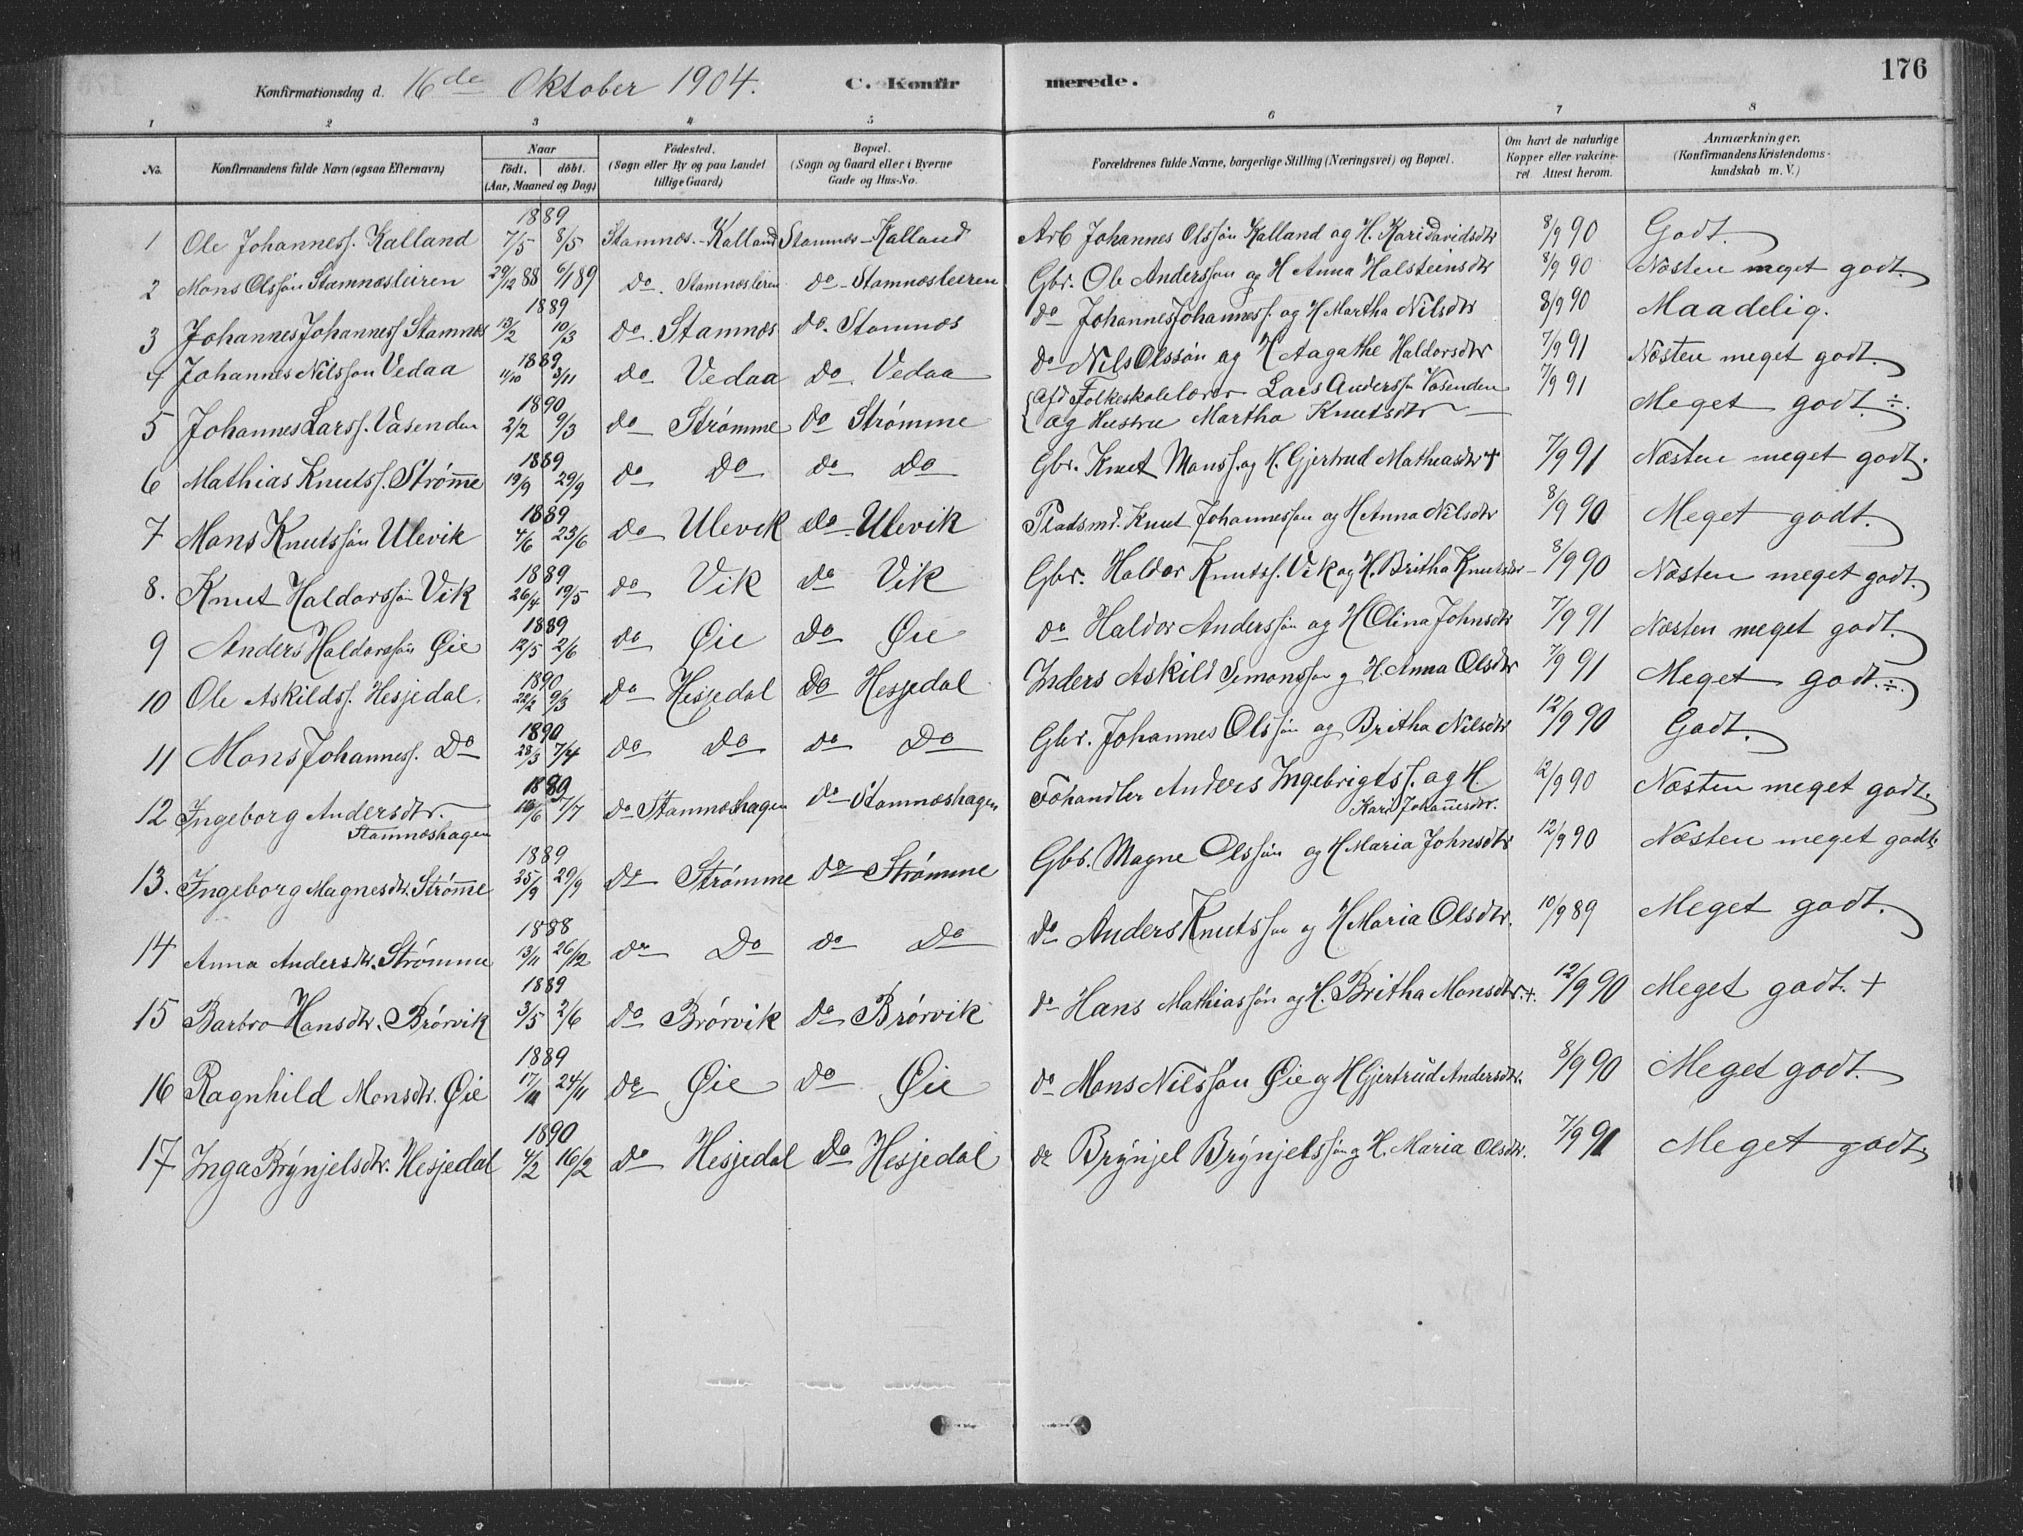 176
Konfirmationsdag d. 16de Oktober 1904. C. Konfirmerede.
1 2 3 4 5 6 7 8
No. Konfirmandens fulde Navn (ogsaa Efternavn) Naar födt. döbt. (Aar, Maaned og Dag) Födested. (Sogn eller By og paa Landet tillige Gaard) Bopæl. (Sogn og Gaard eller i Byerne Gade og Hus-No. Forældrenes fulde Navne, borgerlige Stilling (Næringsvei) og Bopæl. Om havt de naturlige Kopper eller vakcineret Attest herom. Anmærkninger. (Konfirmandens Kristendomskundskab m. V.)
1 Ole Johanness. Kalland 1889 7/5 8/5 Stamnæs-Kalland Stamnæs-Kalland Arb Johannes Olssøn Kalland og H. Kari Davidsdtr 8/9 90 Godt.
2 Mons Olssøn Stamnæsleiren 29/12 88 6/1 89 do Stamnæsleiren do-Stamnæsleiren Gbr. Ole Anderssøn og H Anna Halsteinsdtr 8/9 90 Næsten meget godt.
3 Johannes Johanness. Stamnæs 1889 13/2 10/3 do. Stamnæs do. Stamnæs do Johannes Johanness. og H Martha Nilsdtr 8/9 90 Maadelig.
4 Johannes Nilssøn Vedaa 1889 11/10 3/11 do Vedaa do Vedaa do Nils Olssøn og H Aagathe Haldorsdtr 7/9 91 Næsten meget godt.
5 Johannes Larss. Vasenden 1890 2/2 9/3 do Strømme do Strømme Afd Folkeskolelærer Lars Anderss. Vasenden og Hustru Martha Knutsdtr 7/9 91 Meget godt ÷.
6 Mathias Knuts. Strømme 1889 19/9 29/9 do Do do Do Gbr. Knut Monss. og H. Gjertrud Mathiasdtr + 7/9 91 Næsten meget godt.
7 Mons Knutssøn Ulevik 1889 4/6 23/6 do Ulevik do Ulevik Pladsmd. Knut Johannessøn og H Anna Nilsdtr 8/9 90 Meget godt.
8. Knut Haldorssøn Vik 1889 26/4 19/5 do Vik do Vik Gbr. Haldor Knutss. Vik og H. Britha Knutsdtr 8/9 90 Næsten meget godt.
9 Anders Haldorssøn Øie 1889 12/5 2/6 do Øie Do Øie do Haldor Anderssøn og H Olina Johnsdtr 7/9 91 Næsten meget godt.
10 Ole Askildss. Hesjedal. 1890 22/2 9/3 do Hesjedal Do Hesjedal Inders Askild Simonssøn og H. Anna Olsdtr 7/9 91 Meget godt. ÷.
11 Mons Johanness. Do 1890 28/3 7/4 do Do do Do Gbr. Johannes Olssøn og Britha Nilsdtr 12/9 90 Godt.
12 Ingeborg Andersdtr. Stamnæshagen 1889 /6 7/7 do Stamnæshagen do Stamnæshagen Fohandler Anders Ingebrigts. og H. Kari Johannesdtr. 12/9 90 Næsten meget godt.
13. Ingeborg Magnesdtr. Strømme 1889 25/9 29/9 do Strømme do Strømme Gbr. Magne Olssøn og H Maria Johnsdtr 12/9 90 Næsten meget godt.
14 Anna Andersdtr. Strømme 1888 13/11 26/12 do Do do Do do Anders Knutssøn og H Maria Olsdtr. 10/9 89 Meget godt.
15 Barbro Hansdtr. Brørvik 1889 3/5 2/6 do Brørvik do Brørvik do Hans Mathiassøn og H. Britha Monsdtr. +. 12/9 90 Meget godt. +
16 Ragnhild Monsdtr. Øie 1889 17/11 24/11 do Øie Do Øie do Mons Nilssøn Øie og H Gjertrud Andersdtr. 8/9 90 Meget godt.
17 Inga Brynjelsdtr. Hesjedal 1890 4/2 16/2 do Hesjedal Do Hesjedal do Brynjel Brynjelssøn og H. Maria Olsdtr. 7/9 91 Meget godt.